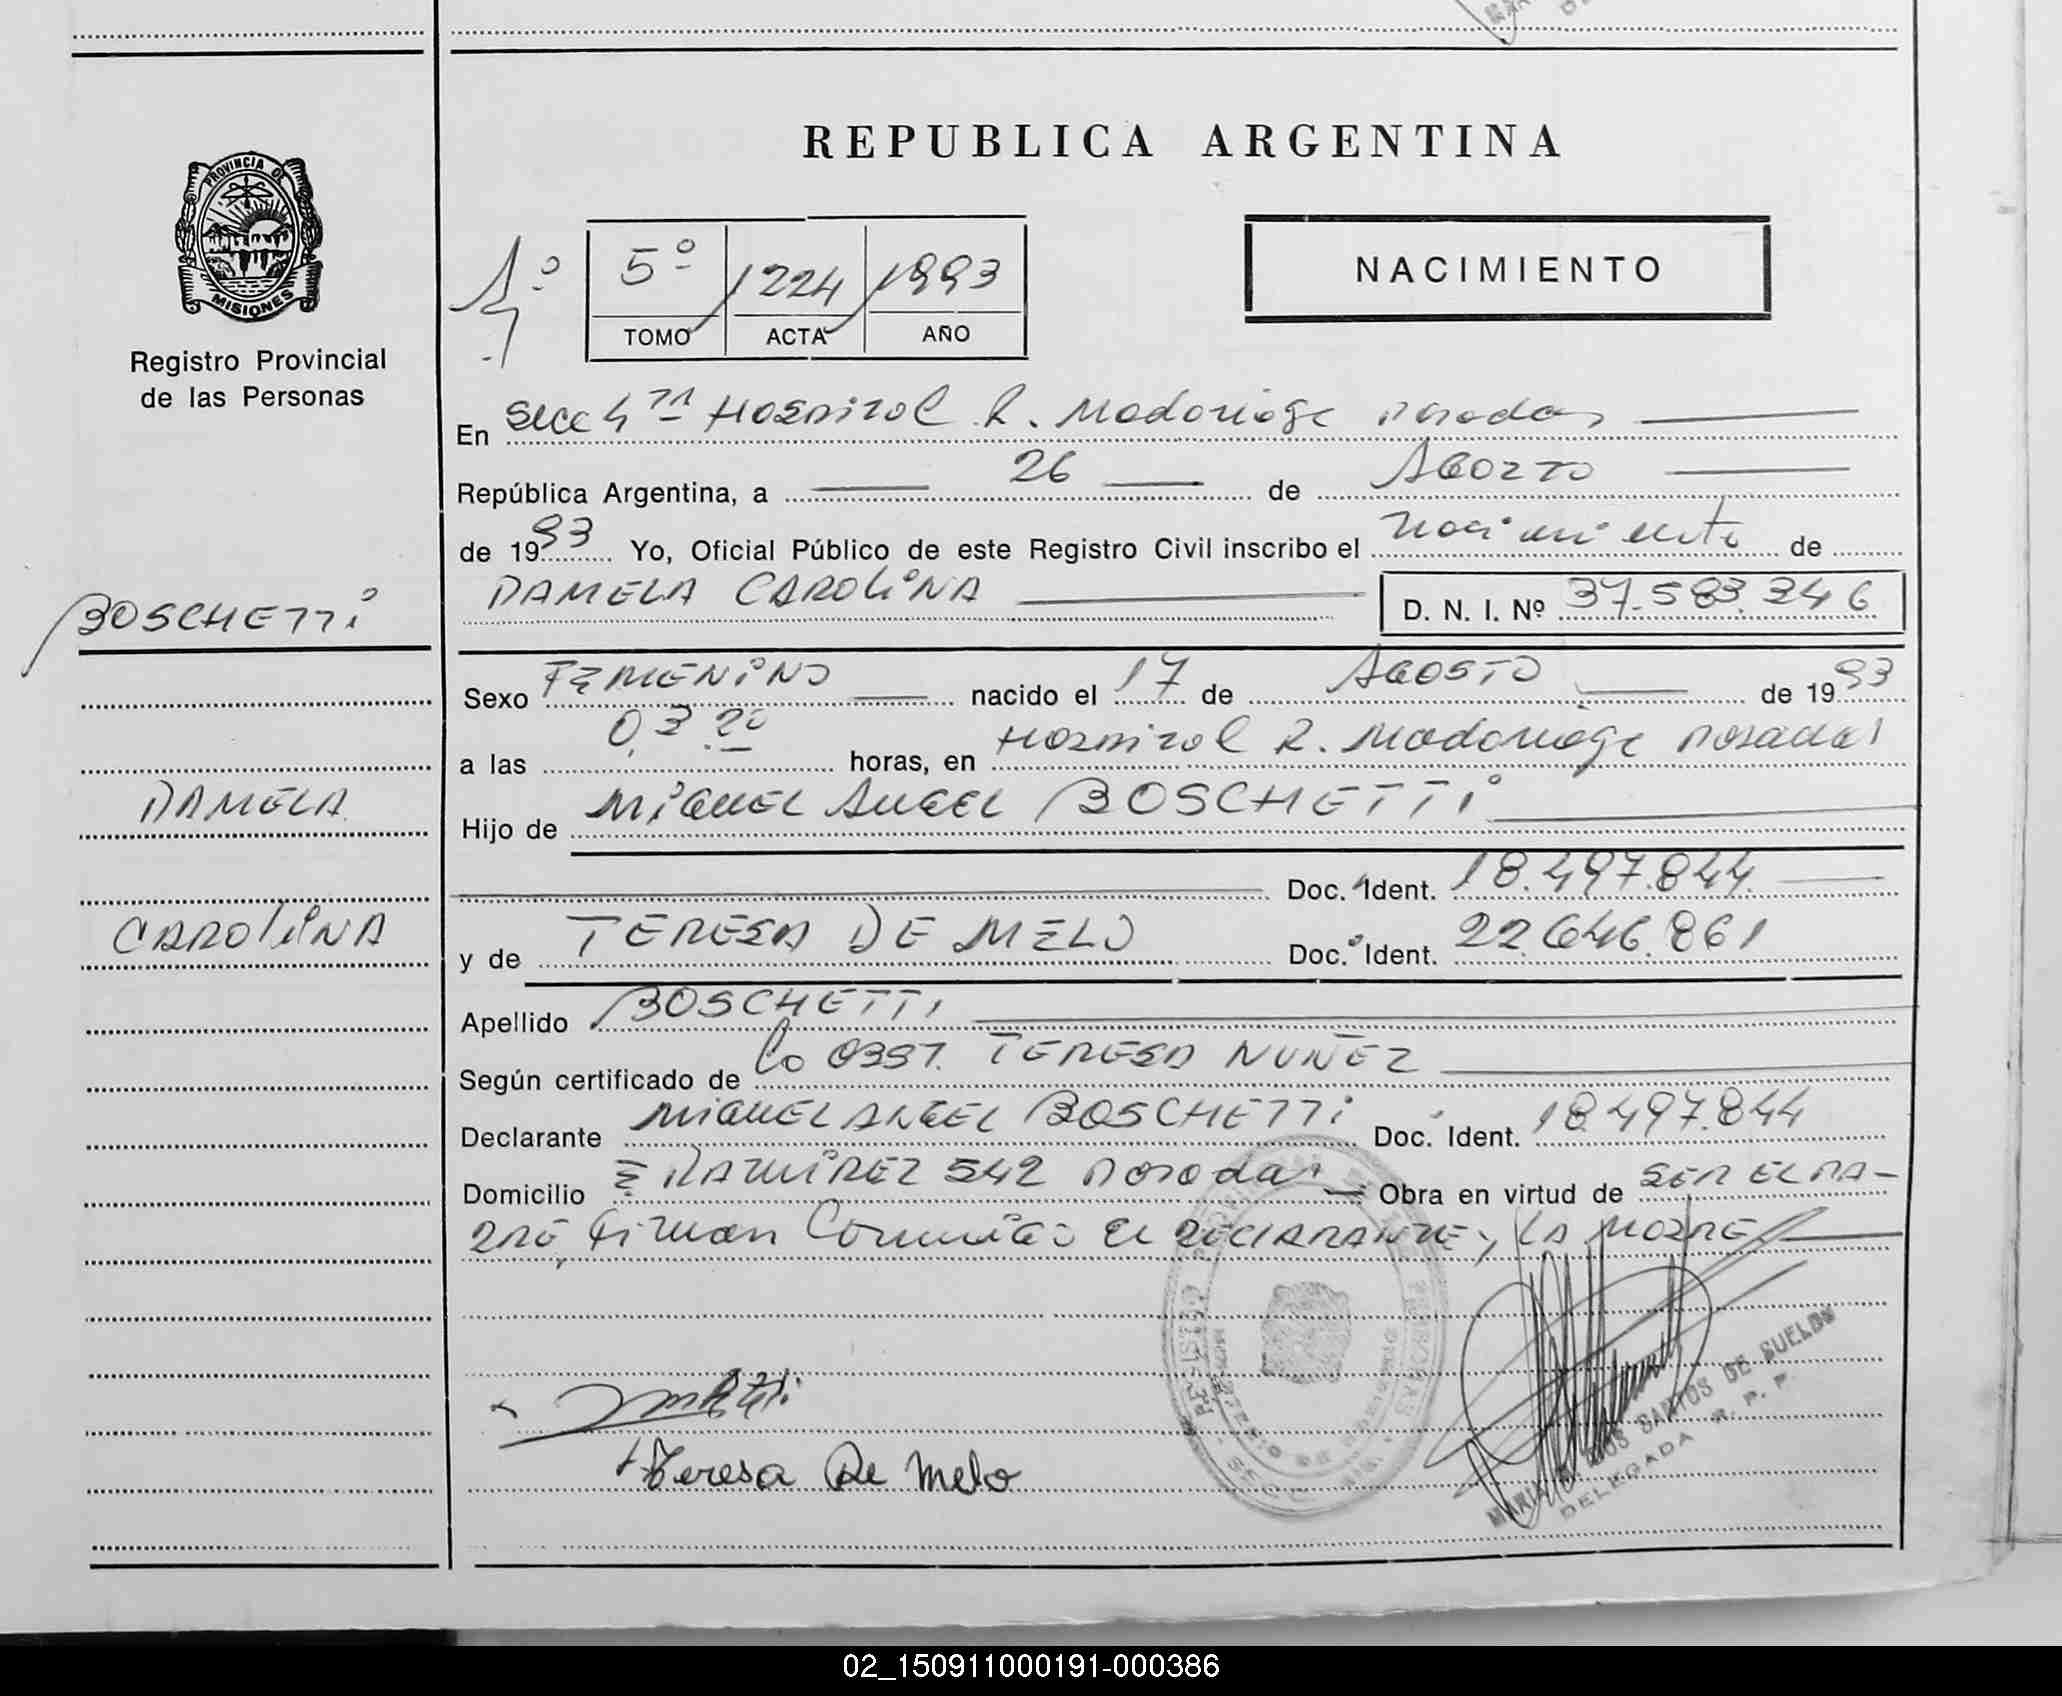 REPUBLICA ARGENTINA
PROVINCIA DE
MISIONES
Registro Provincial
de las Personas
1º
5º 1224 1993
TOMO ACTA AÑO
NACIMIENTO
En Secc 4ta Hospital R. Madariaga Posadas
República Argentina, a 26 de AGOSTO
de 1993 Yo, Oficial Público de este Registro Civil inscribo el nacimiento de
PAMELA CAROLINA D. N. I. Nº 37.583.246
BOSCHETTI
Sexo FEMENINO nacido el 17 de AGOSTO de 1993
a las 03.20 horas, en Hospital R. Madariaga Posadas
PAMELA
Hijo de MIGUEL ANGEL BOSCHETTI
Doc. Ident. 18.497.844
CAROLINA
y de TERESA DE MELO Doc. Ident. 22.646.861
Apellido BOSCHETTI
Según certificado de la OBST. TERESA NUÑEZ
Declarante MIGUEL ANGEL BOSCHETTI Doc. Ident. 18.497.844
Domicilio RAMIREZ 542 Posadas Obra en virtud de SER EL PA-
DRE, Firman el DECLARANTE y LA MADRE
Teresa De Melo
SANTOS DE SUELDO
DELEGADA R. P. P.
02_150911000191-000386